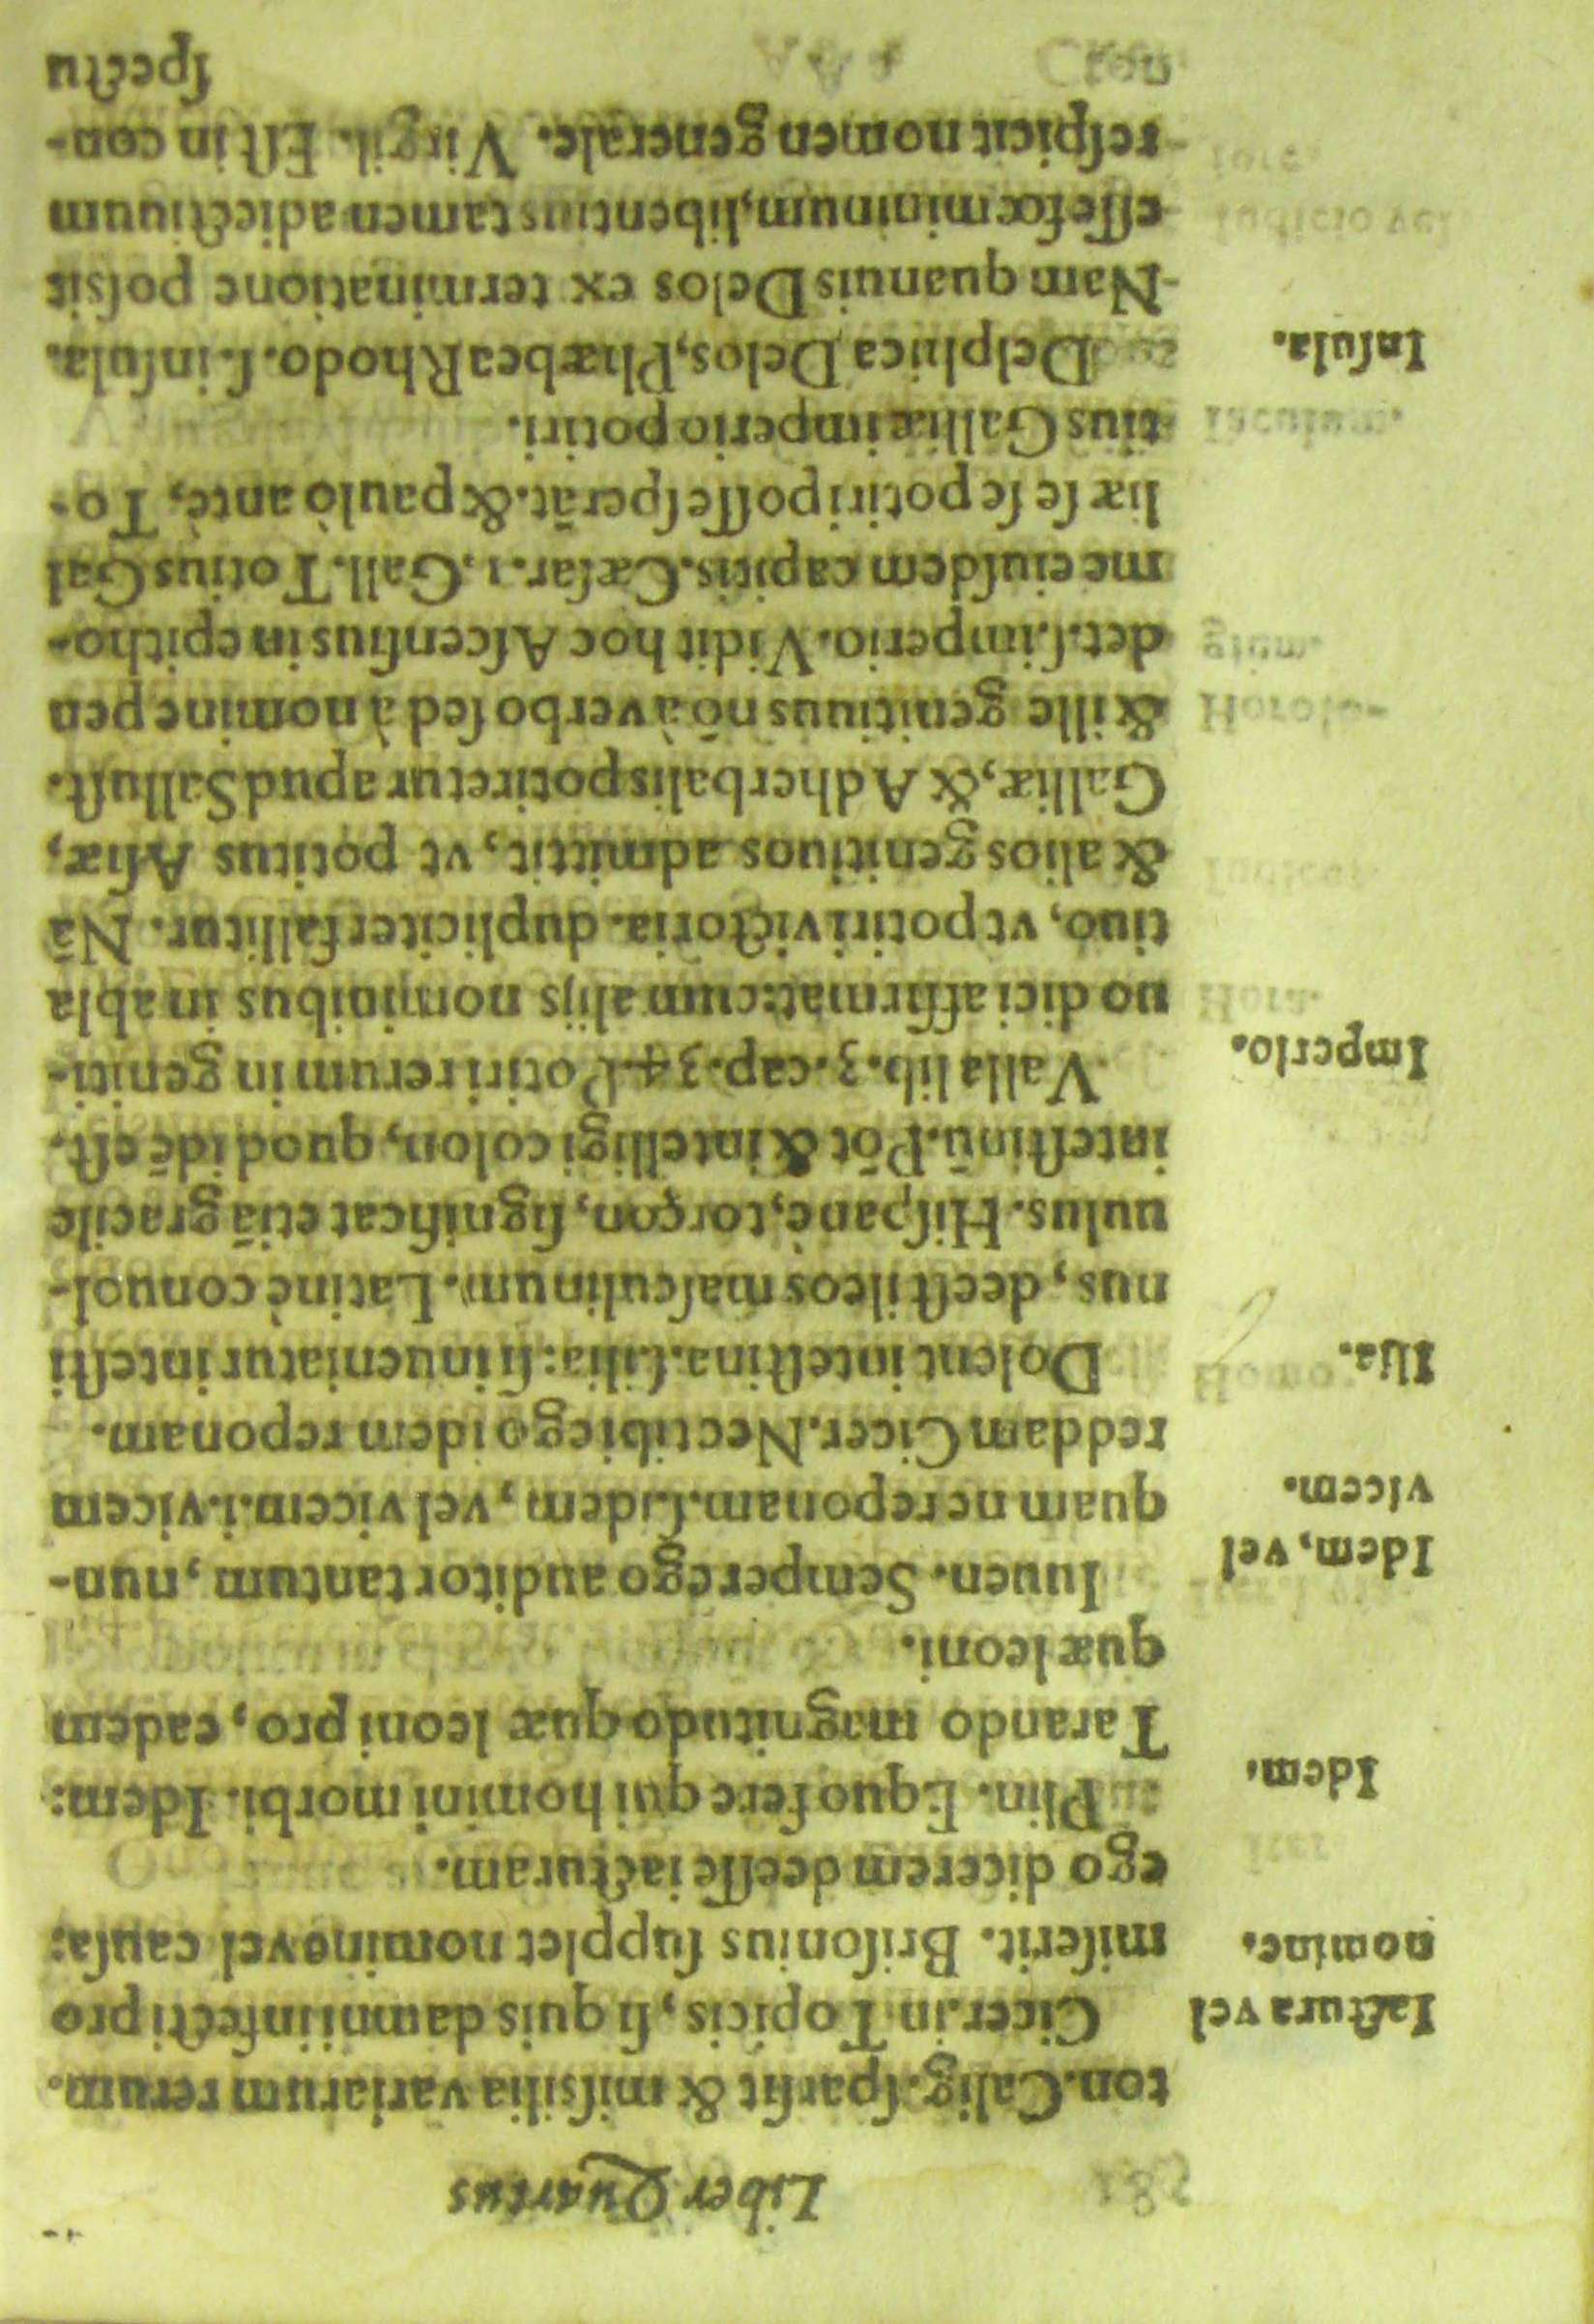 Liber Quartus
ton. Calig. sparsit & missilia variarum rerum.
Iactura vel
nomine.
Cicer. in Topicis, si quis damni infecti pro
miserit. Brisonius supplet nomine vel causa:
ego dicerem deesse iacturam.
Idem.
Plin. Equo fere qui homini morbi. Idem:
Tarando magnitudo quæ leoni pro, eadem
quæ leoni.
Idem, vel
vicem.
Iuuen. Semper ego auditor tantum, nun-
quam ne reponam. s. idem, vel vicem. i. vicem
reddam Cicer. Nec tibi ego idem reponam.
Ilia.
Dolent intestina. s. ilia: si inueniatur intesti
nus, deest ileos masculinum. Latinè conuol-
uulus. Hispanè, torçon, significat etiã gracile
intestinũ. Põt & intelligi colon, quod idẽ est.
Imperio.
Valla lib. 3. cap. 34. Potiri rerum in geniti-
uo dici affirmat: cum alijs nominibus in abla
tiuo, vt potiri victoria. dupliciter fallitur. Nã
& alios genitiuos admittit, vt potitus Asiæ,
Galliæ, & Adherbalis potiretur apud Sallust.
& ille genitiuus nõ à verbo sed à nomine pen
det. s. imperio. Vidit hoc Ascensius in epitho-
me eiusdem capitis. Cæsar. 1. Gall. Totius Gal
liæ se se potiri posse sperãt. & paulò antè, To-
tius Galliæ imperio potiri.
Insula.
Delphica Delos, Phæbea Rhodo. s. insula.
Nam quanuis Delos ex terminatione possit
esse fœmininum, libentius tamen adiectiuum
respicit nomen generale. Virgil. Est in con-
spectu